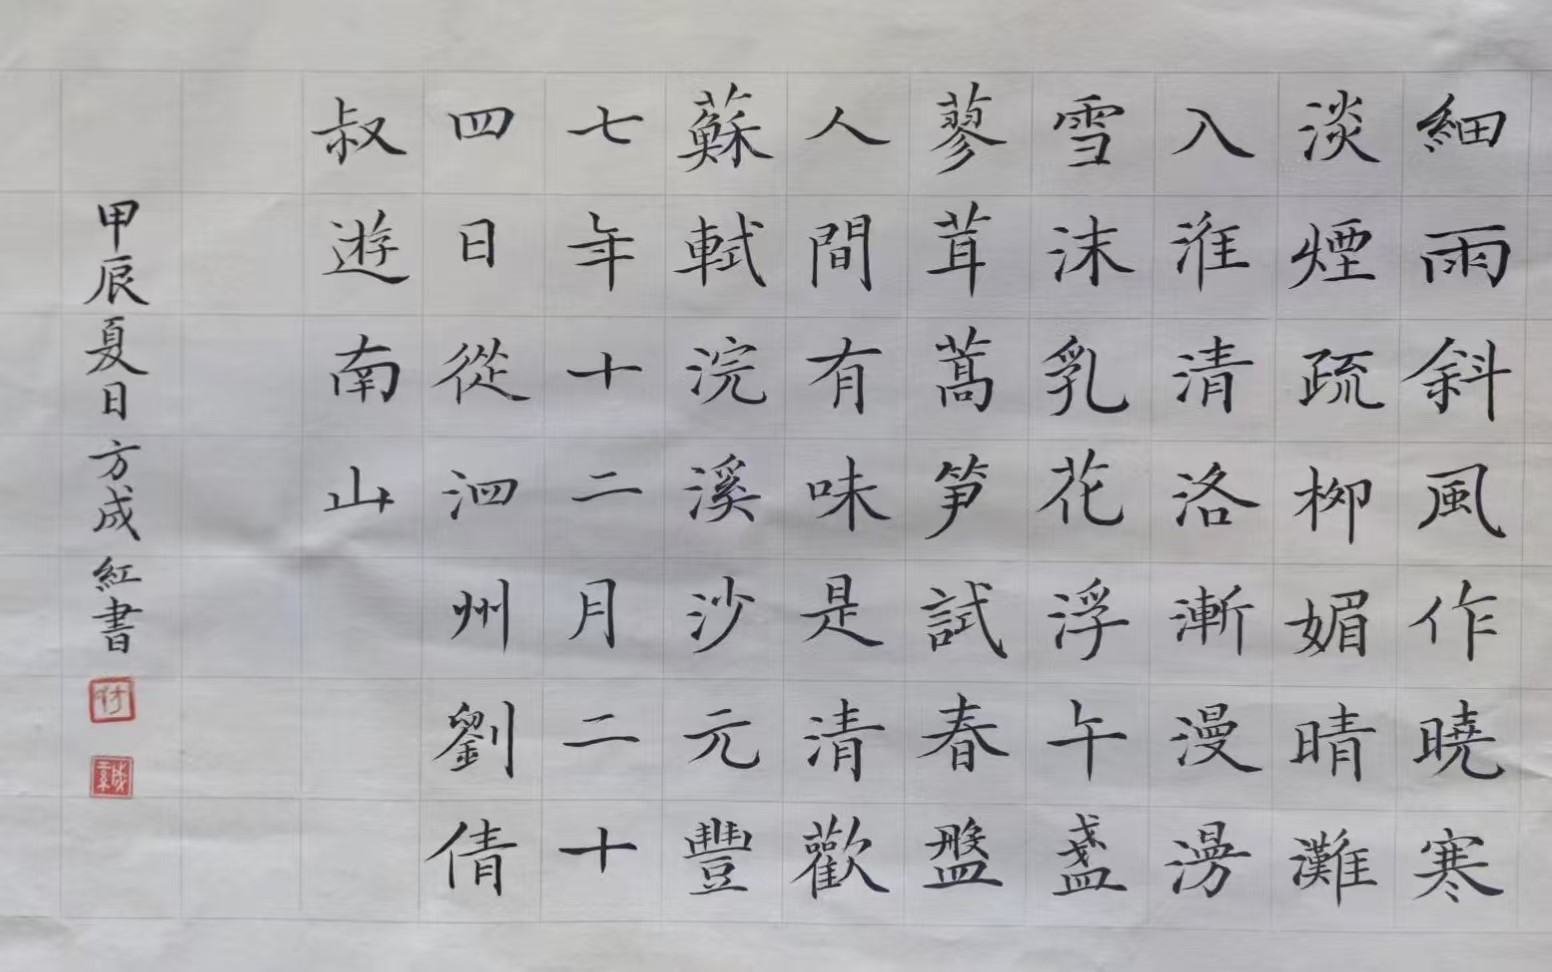 細雨斜風作曉寒
淡煙疏柳媚晴灘
入淮清洛漸漫漫
雪沫乳花浮午盞
蓼茸蒿笋試春盤
人間有味是清歡
蘇軾浣溪沙元豐
七年十二月二十
四日從泗州劉倩
叔遊南山
甲辰夏日方成紅書